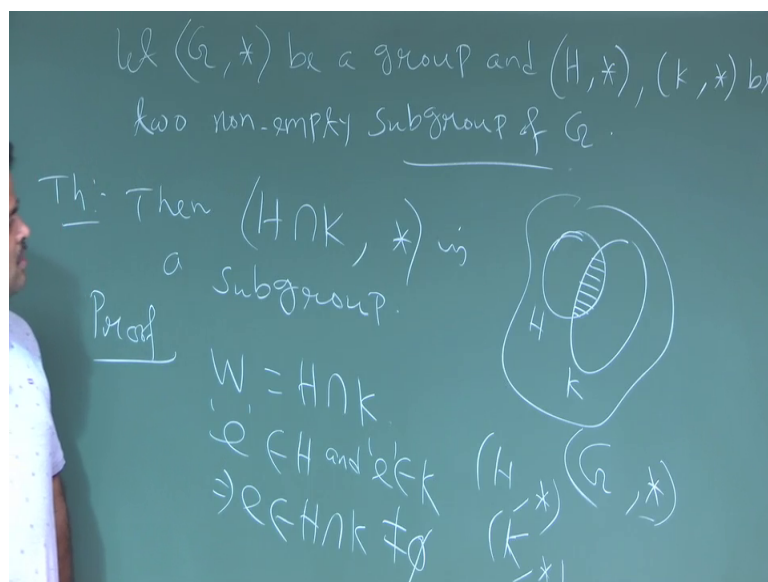 Let (G, *) be a group and (H, *), (K, *) be
two non-empty Subgroup of G.
Th:- Then (H∩K, *) is
a subgroup.
Proof
W = H∩K
'e' ∈ H and 'e' ∈ K
⇒ e ∈ H∩K ≠ φ
H
K
(G, *)
(H, *)
(K, *)